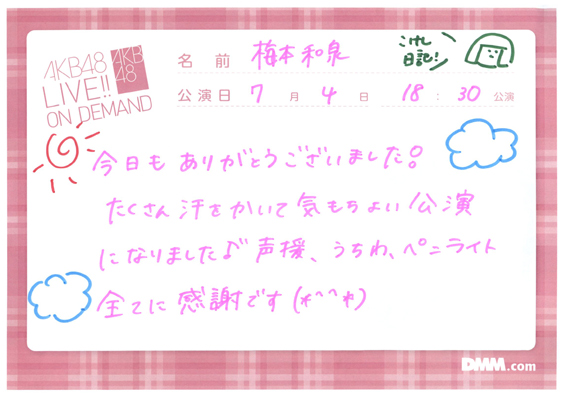 AKB48
LIVE!!
ON DEMAND
AKB
48
名前 梅本和泉
けし
日記!
公演日 7月4日 18:30公演
今日も ありがとうございました!
たくさん汗をかいて気もちよい公演
になりました♪ 声援、うちわ、ペンライト
全てに感謝です(*^^*)
DMM.com